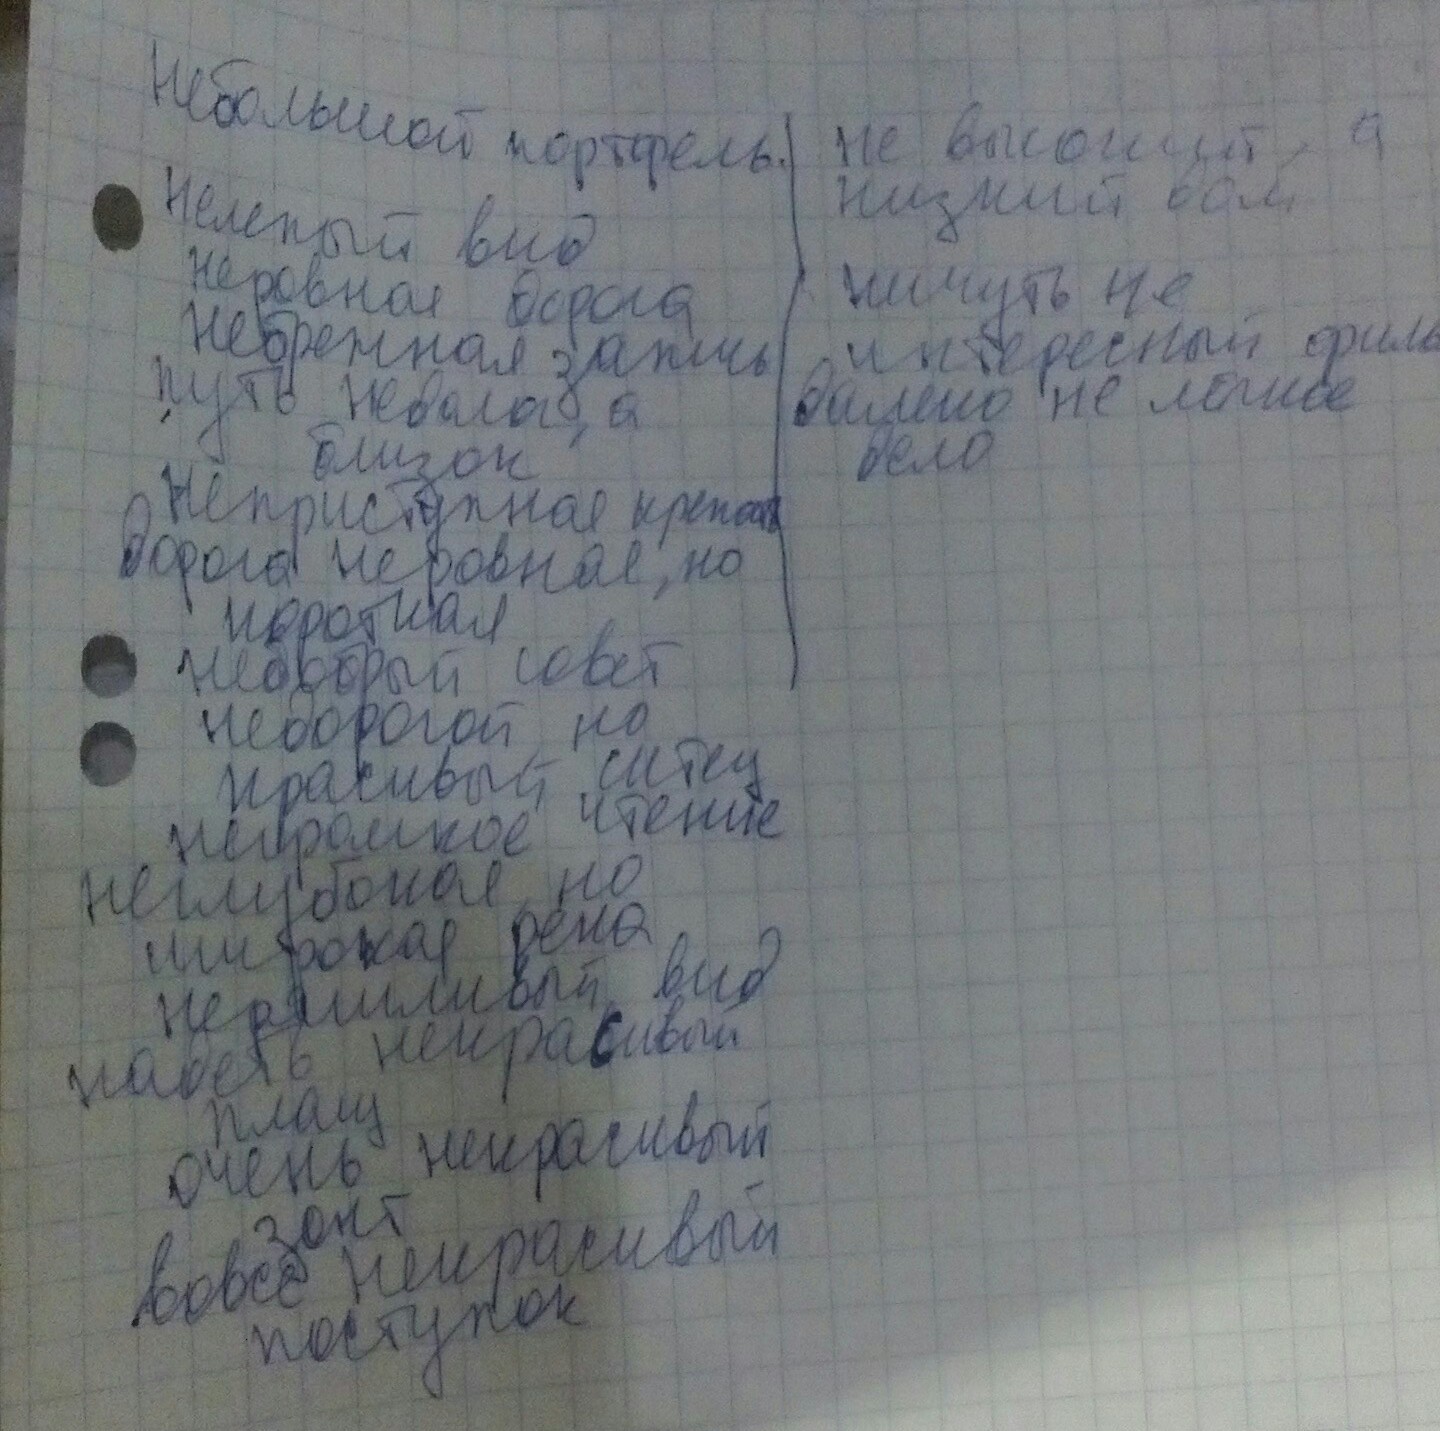 Небольшой портфель.
Нелепый вид
Неровная дорога
Небрежная запись
путь недалог, а
близок
Неприступная крепость
дорога неровная, но
короткая
недобрый совет
недорогой, но
красивый ситец
негромкое чтение
неглубокая, но
широкая река
неряшливый вид
надеть некрасивый
плащ
очень некрасивый
зонт
вовсе некрасивый
поступок
не высокий, а
низкий дом
ничуть не
интересный фильм
далеко не легкое
дело